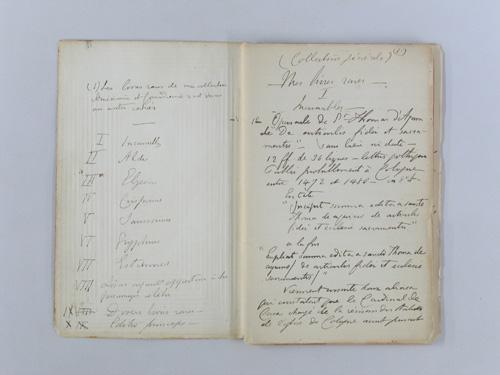 (1) Les livres rares de ma collection
sont dans
un autre cahier
I Incunables
II Alde
"III" Elzevir
IV
V
VI Gryphius
VII Estiennes
VIII Livres ayant appartenu à des
personnages célèbres
IX Divers livres rares
X Editio princeps
(Collections générales) (1)
Mes livres rares
I
Incunables
1º "Opuscule de St Thomas d'Aquin
de De articulis fidei et sacra-
mentis" sans lieu ni date
12 ff de 36 lignes - lettres gothiques
Publié probablement à Cologne
entre 1472 et 1480 - in 8º
En tête
"Incipit summa edita a sancto
Thoma de aquino de articulis
fidei et ecclesie sacramentis"
à la fin
"Explicit summa edita a sancto Thoma de
aquino / de articulis fidei et ecclesie
sacramentis /"
Viennent ensuite deux
qui constatent que le Cardinal de
Cusa chargé de la réunion des
de l'église de Cologne avait